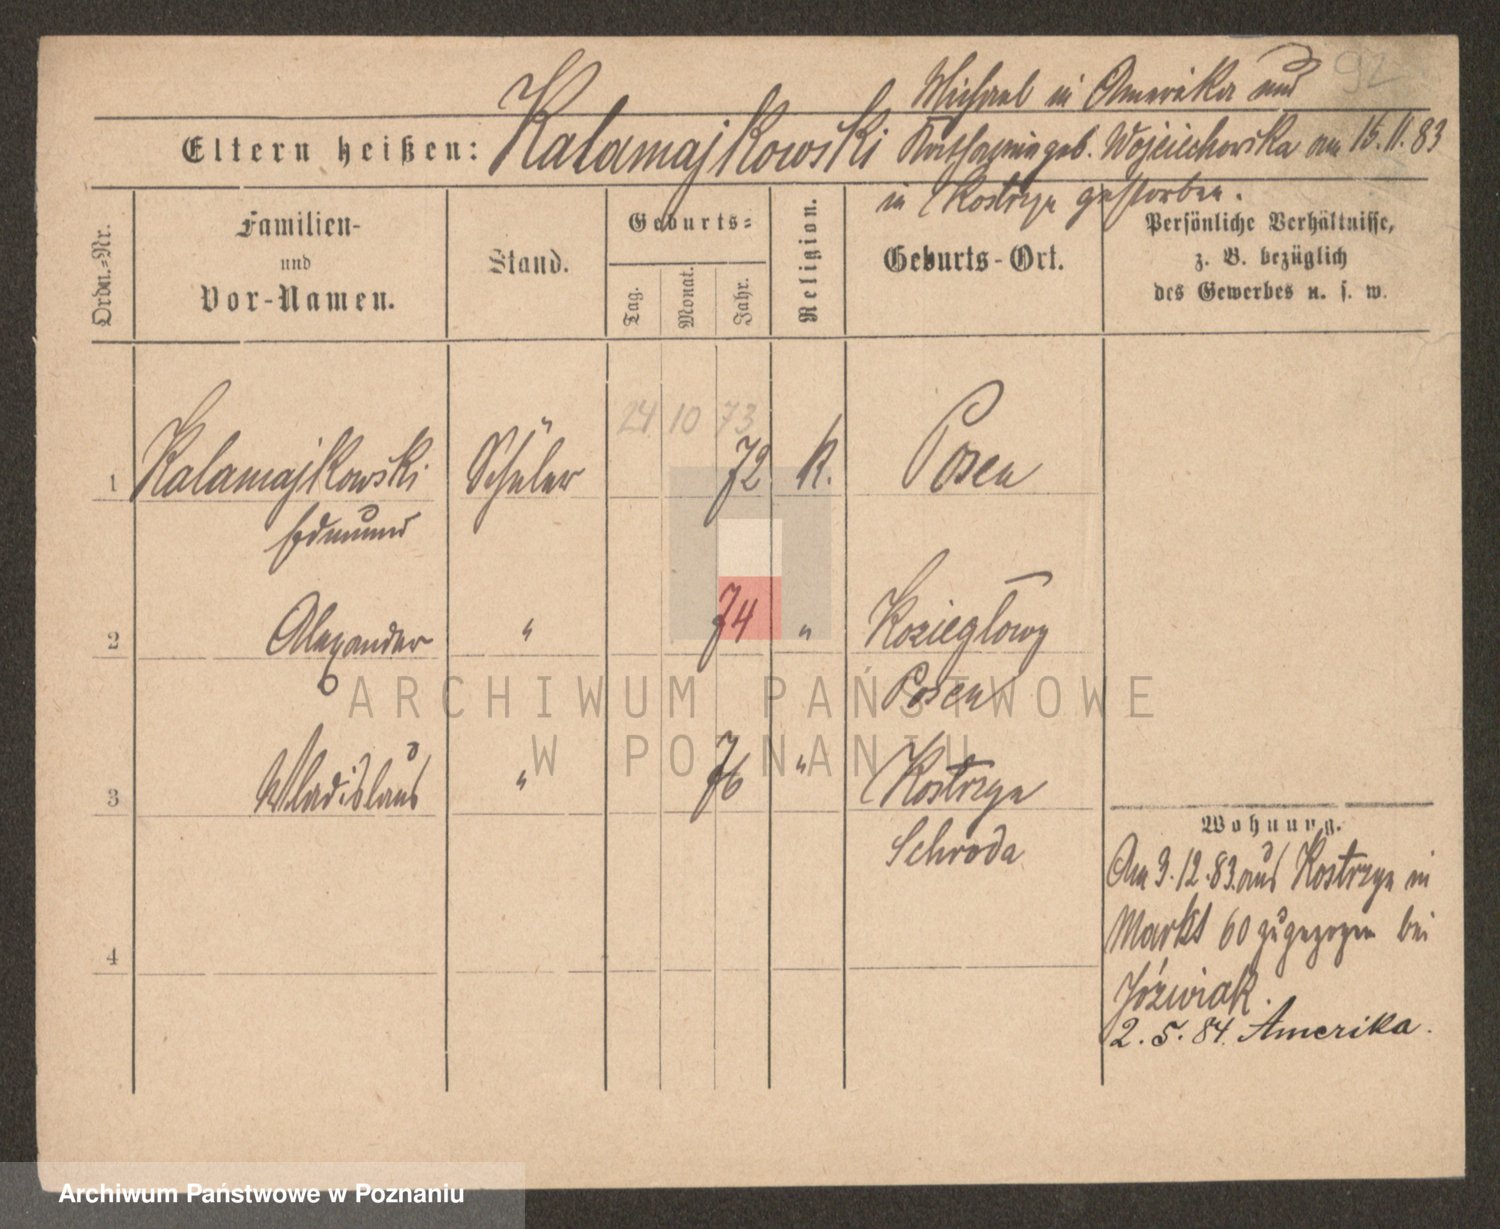 92
Michael in Amerika und
Eltern heißen: Kalamajkowski Katharina geb. Wojciechowska am 15.11.83
in Kostrzyn gestorben.
Ordn.=Nr.
Familien-
und
Vor-Namen.
Stand.
Geburts=
Tag.
Monat.
Jahr.
Religion.
Geburts-Ort.
Persönliche Verhältnisse,
z. B. bezüglich
des Gewerbes u. s. w.
24 10 73
1 Kalamajkowski Schüler 72 K. Posen
Edmund
2 Alexander " 74 " Kozieglowy
Posen
3 Wladislaus " 76 " Kostrzyn
Schroda
4
Wohnung.
Am 9.12.83 aus Kostrzyn in
Markt 60 zugezogen bei
Jóźwiak.
2.5.84. Amerika.
ARCHIWUM PAŃSTWOWE
W POZNANIU
Archiwum Państwowe w Poznaniu